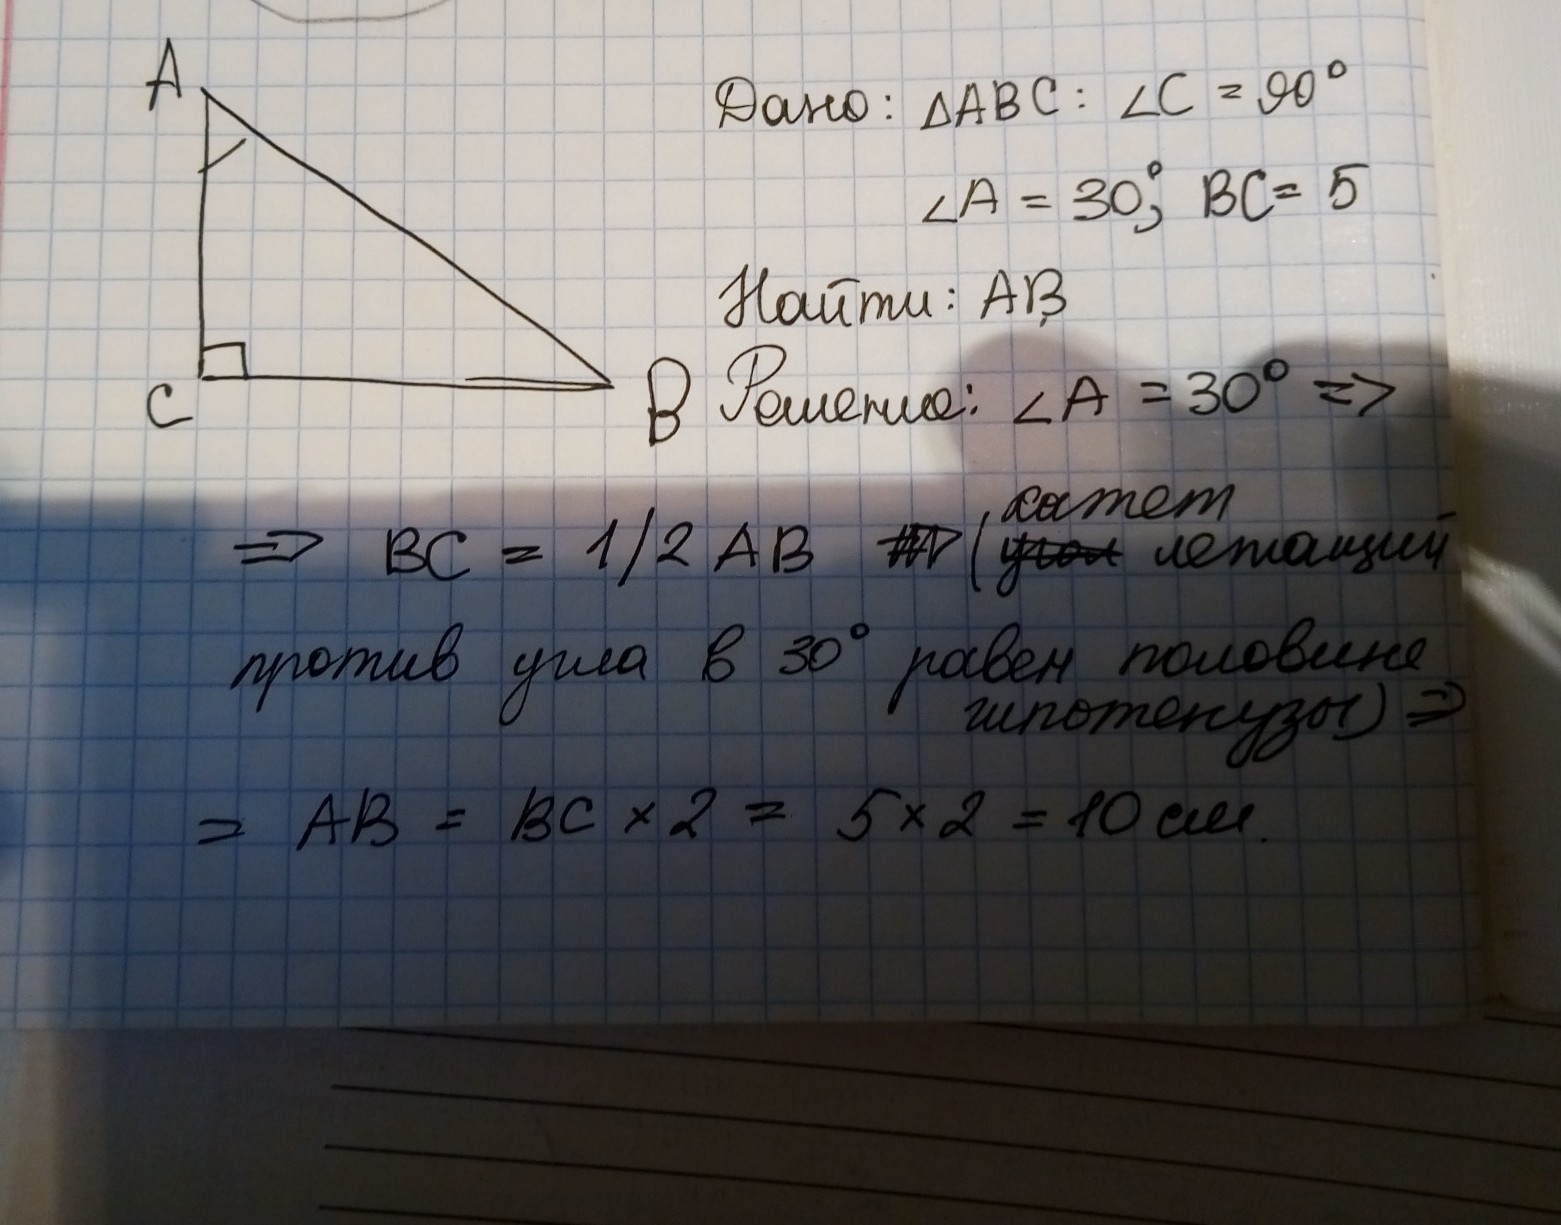 A
C
B
Дано: ΔABC: ∠C = 90°
∠A = 30°; BC = 5
Найти: AB
Решение: ∠A = 30° =>
=> BC = 1/2 AB (катет
угол лежащий
против угла в 30° равен половине
гипотенузы) =>
= AB = BC × 2 = 5 × 2 = 10 см.